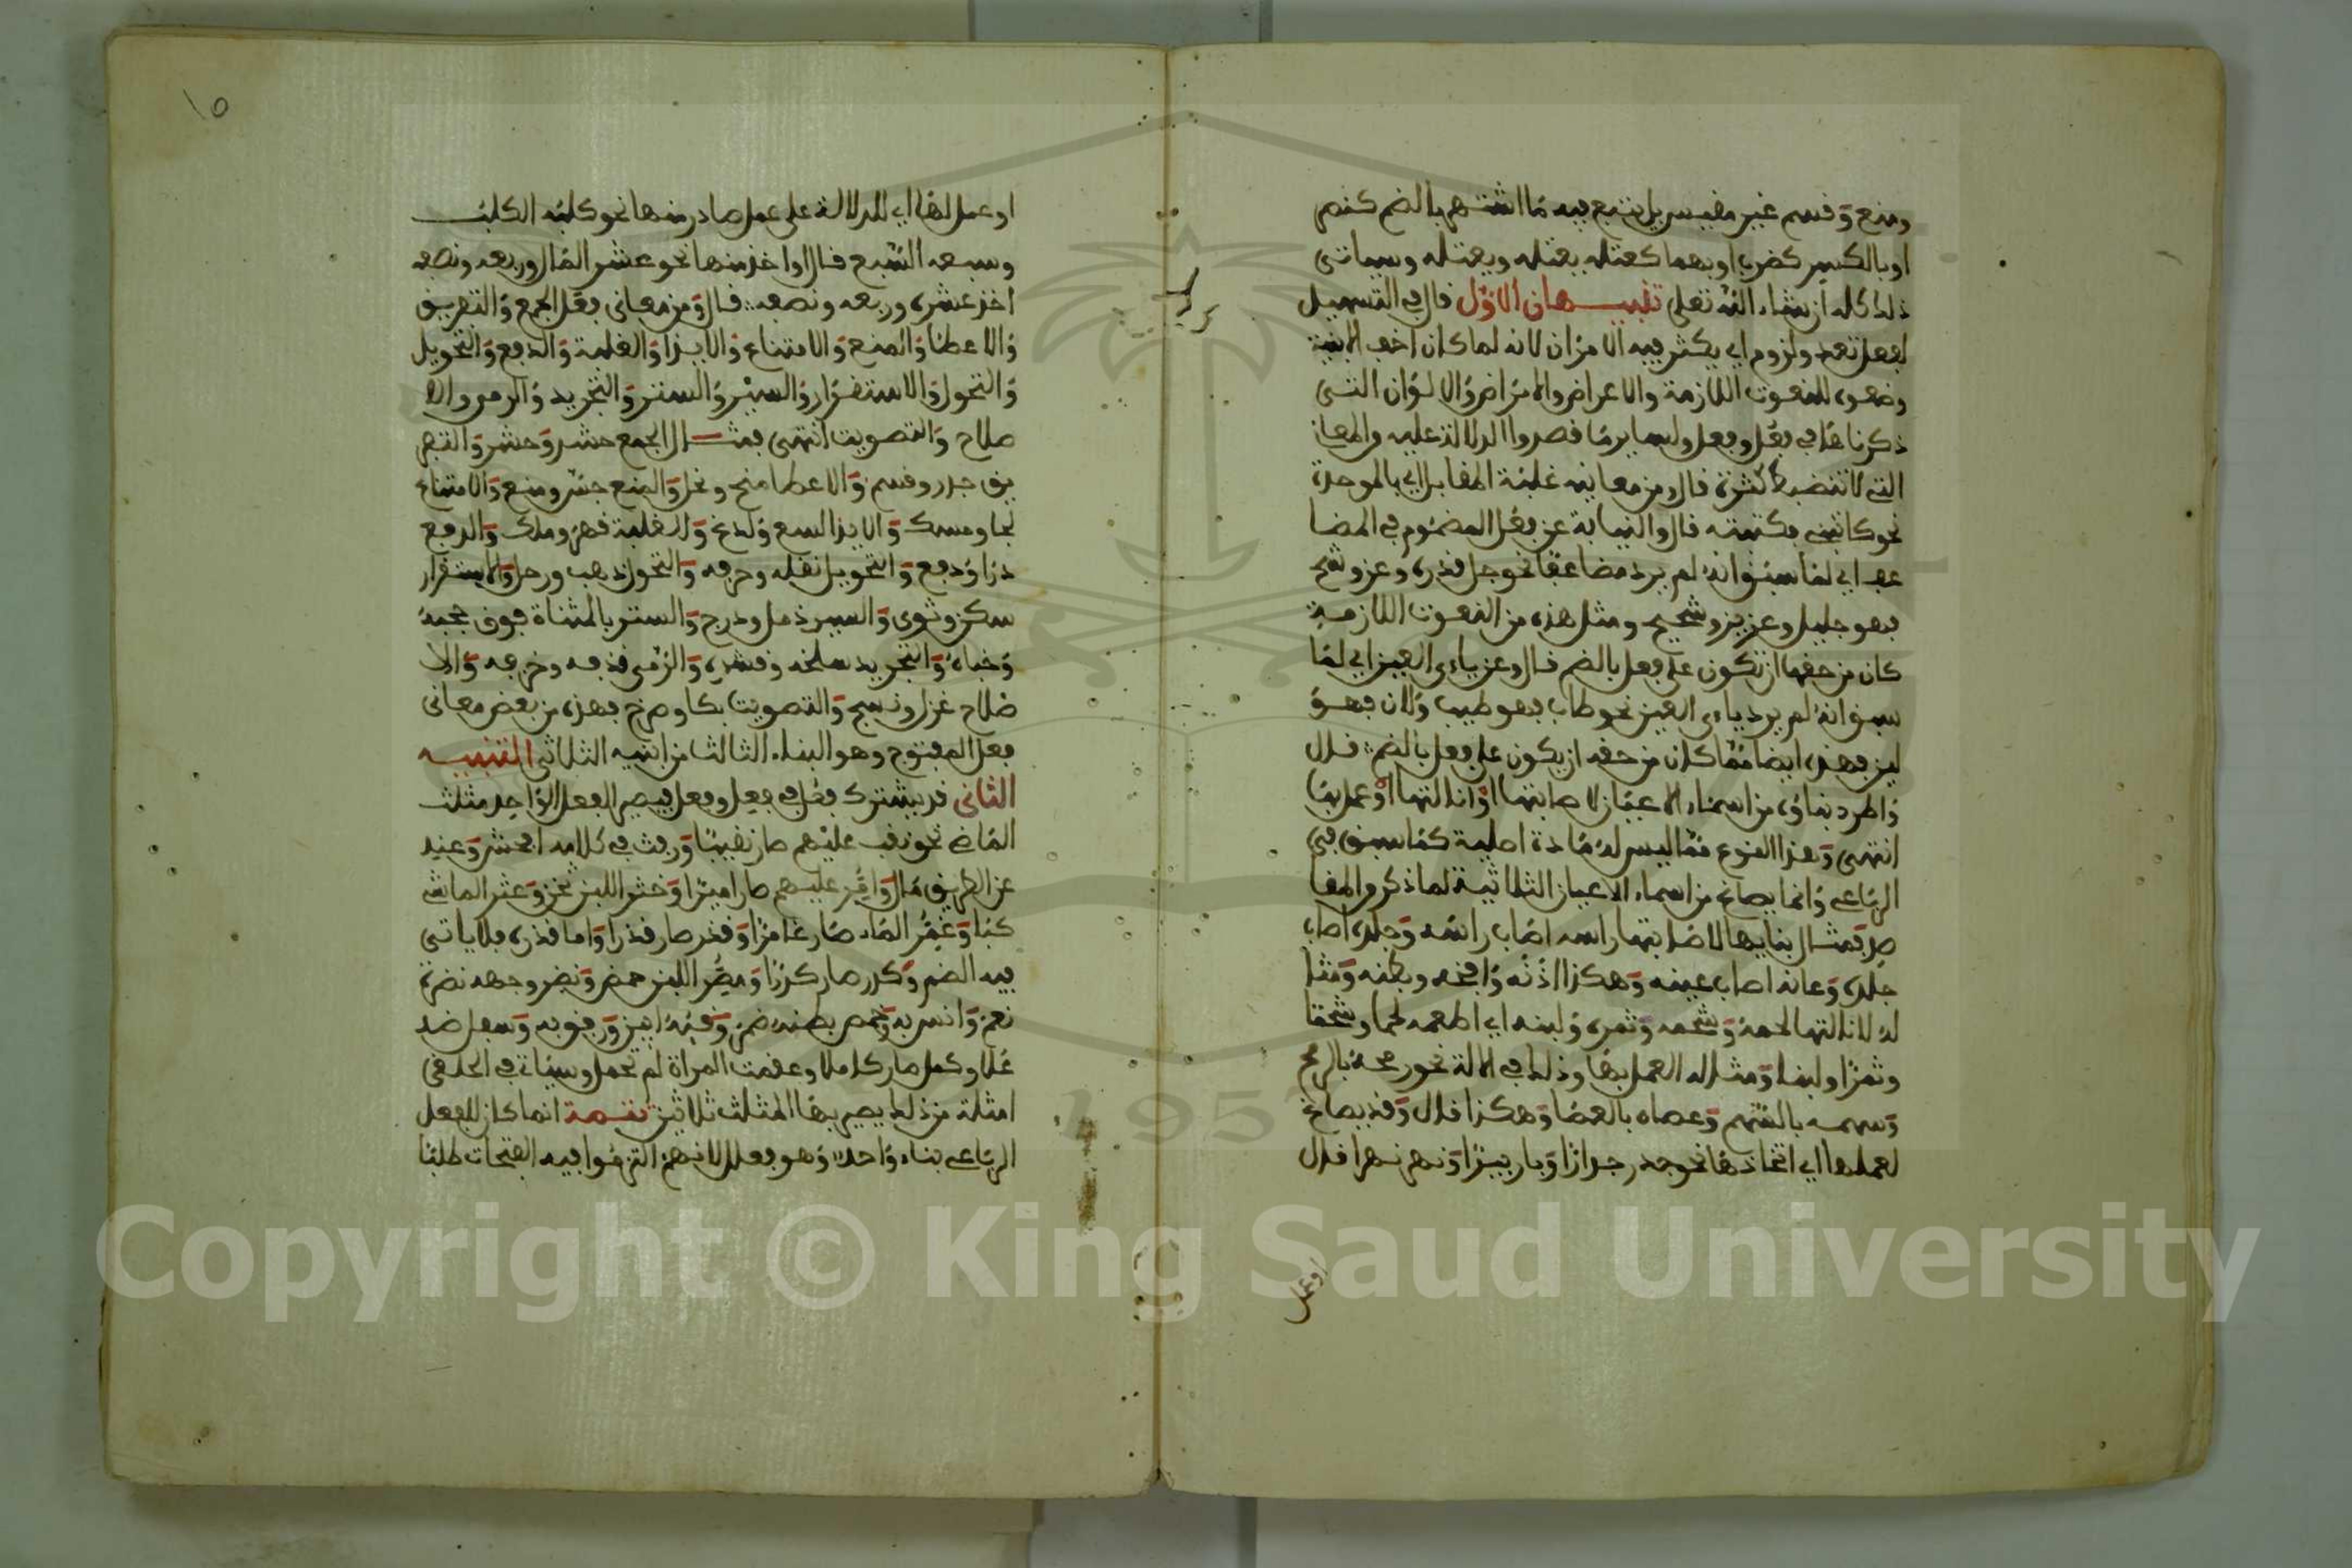 ومنع وقسم غير مقيس بل يتبع فيه ما اشتهر بالضم كنصر
او بالكسر كضرب او بهما كعتله يعتله ويعتله وسياتى
ذلك كله ان شاء الله تعلى تنبيهان الاول قال فى التسهيل
لفعل تعد ولزوم اي يكثر فيه الامران لانه لما كان اخف الابنية
وضعوه للنعوت اللازمة والاعراض والامراض والالوان التى
ذكرناها فى فعل وفعل ولسا يرما قصدوا الدلالة عليه والمعان
التى لا تنضبط كثرة قال ومن معانيه غلبة المقابل اي بالموحدة
نحو كاتبنى فكتبته قال والنيابة عن فعل المضموم فى المضا
عف اي لما سبق انه لم يرد مضاعفا نحو جل قدره وعز وشح
فهو جليل وعزيز وشحيح ومثل هذه من النعوت اللازمة
كان من حقها ان تكون على فعل بالضم قال وعن ياءى العين اي لما
سبق انه لم يرد ياءى العين نحو طاب فهو طيب ولان فهو
لين فهذه ايضا مما كان من حقه ان يكون على فعل بالضم قال
واطرد بناؤه من اسماء الاعيان لاصابتها او انالتها او عمل بها
انتهى وهذا النوع مما ليس له مادة اصلية كما سبق فى
الرباعى وانما يصاغ من اسماء الاعيان الثلاثية لما ذكر والمقا
صد فمثال بنايها لاصابتها راسه اصاب راسه وجلده اصاب
جلده وعانه اصاب عينه وهكذا اذنه وافخه وبطنه ومثا
له لانالتها لحمه وشحمه وثمره ولبنه اي اطعمه لحما وشحما
وثمرا ولبنا ومثاله العمل بها وذلك فى الالة نحو رمحه بالرمح
وسهمه بالسهم وعصاه بالعصا وهكذا قال وقد يصاغ
لعملها اي اتخاذها نحو جدر جدارا وبار بيرا ونهر نهرا قال
او عمل
١٥
او عمل لها اي للدلالة على عمل صادر منها نحو كلبه الكلب
وسبعه السبع قال او اخذ منها نحو عشر المال وربعه ونصفه
اخذ عشره وربعه ونصفه قال ومن معانى فعل الجمع والتفريق
والاعطا والمنع والامتناع والايذا والغلبة والدفع والتحويل
والتحول والاستقرار والسير والستر والتجريد والرمي والا
صلاح والتصويت انتهى فمثال الجمع حشد وحشر والتفر
يق جدر وقسم والاعطا منح ونحل والمنع حبس ومنع والامتناع
لجا ومسك والايذا لسع ولدغ والغلبة قهر وملك والدفع
درا ودفع والتحويل نقله وحرفه والتحول ذهب ورحل والاستقرار
سكن وثوى والسير ذمل ودرج والستر بالمثناة فوق حجبه
وخباه والتجريد سلخه وقشره والرمى قذفه وخرعه والا
صلاح غزل ونسج والتصويت بكا وصرخ فهذه من بعض معانى
فعل المفتوح وهو البناء الثالث من ابنيه الثلاثى التنبيه
الثانى قد يشترك فعل فى فعل وفعل فيصير الفعل الواحد مثلث
الماضى نحو نقب عليهم صار نقيبا ورفث فى كلامه افحش وعند
عن الطريق مال وامر عليهم صار اميرا وخثر اللبن ثخن وعثر الماشى
كبا وغمر الماء صار غامرا وقذر صار قذرا واما قذره فلا ياتى
فيه الضم وكدر صار كدرا ومضر اللبن حمض ونضر وجهه نضرة
نعم وانس به وخمص بطنه ضمر وقنط ايس ورفق به وسفل ضد
علا وكمل صار كاملا وعقمت المراة لم تحمل وسياتى فى الحلقى
امثلة من ذلك يصير بها المثلث ثلاثين تتمة انما كان للفعل
الرباعى بناء واحد وهو فعلل لانهم التزموا فيه الفتحات طلبا
Copyright © King Saud University
1957